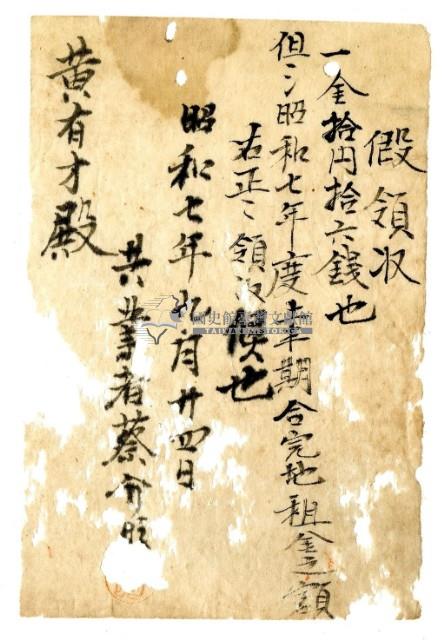 假領収
一金拾円拾六錢也
但シ昭和七年度上半期合完地租金之額
右正ニ領収候也
昭和七年九月廿四日
共業者蔡
黃有才殿
國史館臺灣文獻館
TAIWAN HISTORICA